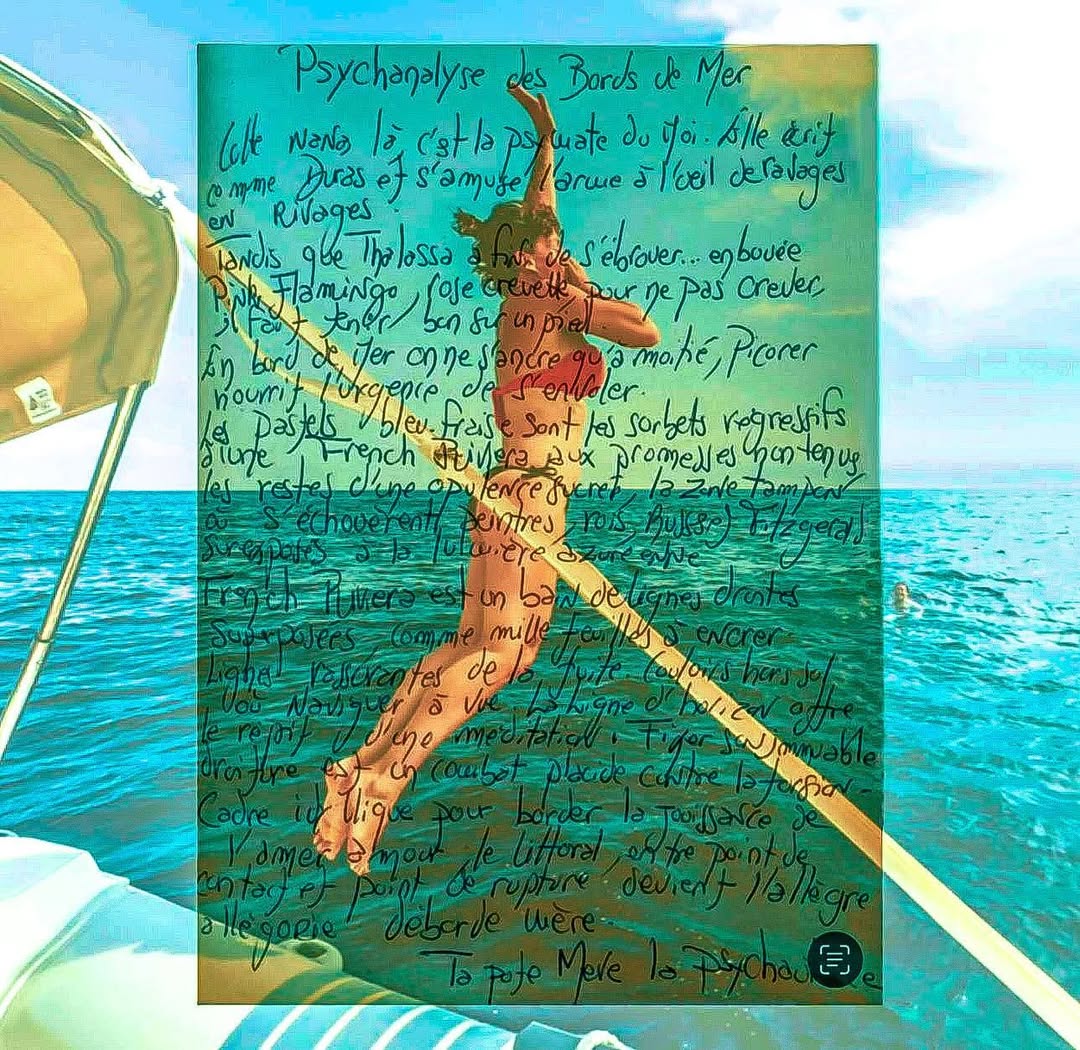 Psychanalyse des Bords de Mer
Cette Nana là c'est la du Moi. Elle écrit
comme Duras et s'amuse à l'oeil de ravages
en Rivages.
Tandis que Thalassa a fini de s'ébrouer... en bouée
Pink Flamingo, rose crevette, pour ne pas crever,
il faut tenir bon sur un pied.
En bord de Mer on ne s'ancre qu'à moitié, Picorer
nourrit l'urgence de s'envoler.
Les Pastels bleu-fraise sont les sorbets régressifs
d'une French Riviera aux promesses non tenus,
les restes d'une opulence sucrée, la zone tampon
où s'échouèrent peintres, rois, Fitzgerald
surexposés à la lumière azuréenne
French Riviera est un bain de lignes droites
Superposées, comme mille feuilles à encrer
Lignes rassurantes de la fuite, Couloirs hors sol
où Naviguer à vue. La Ligne d'horizon offre
le répit d'une méditation : Figer son immuable
droiture est un combat placide contre la torsion.
Cadre idyllique pour border la Jouissance de
l'amer amour, le littoral, entre point de
contact et point de rupture, devient l'allègre
allégorie déborde mère.
Ta pote Meve la